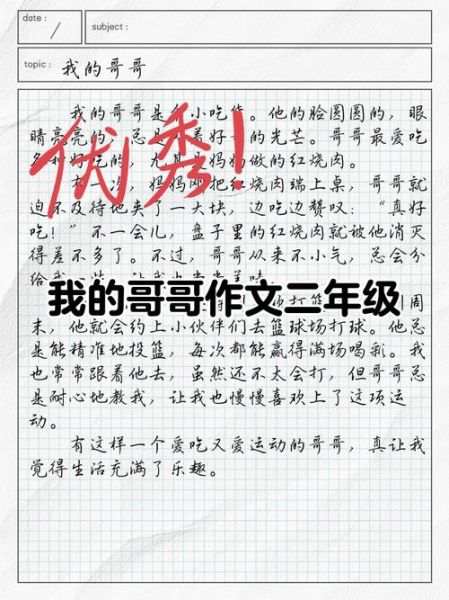 date :
subject :
topic : 我的哥哥
我的哥哥是个小吃货。他的脸圆圆的，眼
睛亮亮的，总是着好的光芒。哥哥最爱吃
的，尤其是妈妈做的红烧肉。
有一次，妈妈刚把红烧肉端上桌，哥哥就
迫不及待地夹了一大块，边吃边赞叹：“真好
吃！”不一会儿，盘子里的红烧肉就被他消灭
得差不多了。不过，哥哥从来不小气，总会分
给我一些
打篮周
末，他就会约上小伙伴们去篮球场打球。他总
是能精准地投篮，每次都能赢得满场喝彩。我
也常常跟着他去，虽然还不太会打，但哥哥总
是耐心地教我，让我也慢慢喜欢上了这项运
动。
有这样一个爱吃又爱运动的哥哥，真让我
觉得生活充满了乐趣。
优秀！
我的哥哥作文二年级